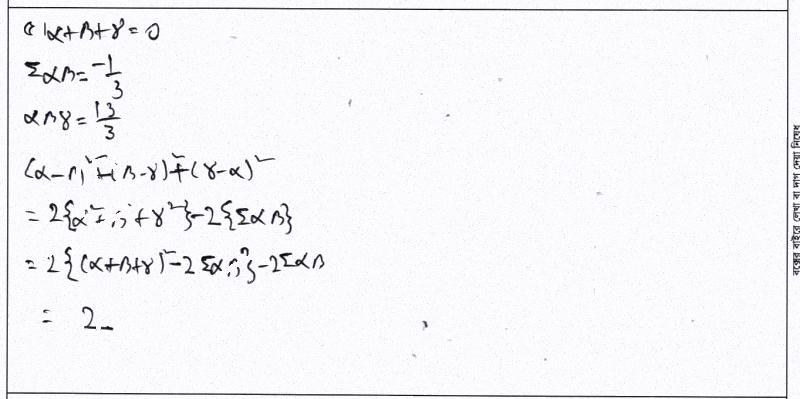 α+β+γ=0
Σαβ=-1/3
αβγ=13/3
(α-β)²+(β-γ)²+(γ-α)²
=2{α²+β²+γ²}-2{Σαβ}
=2{(α+β+γ)²-2Σαβ}-2Σαβ
= 2
বক্সের বাইরে লেখা বা দাগ দেয়া নিষেধ